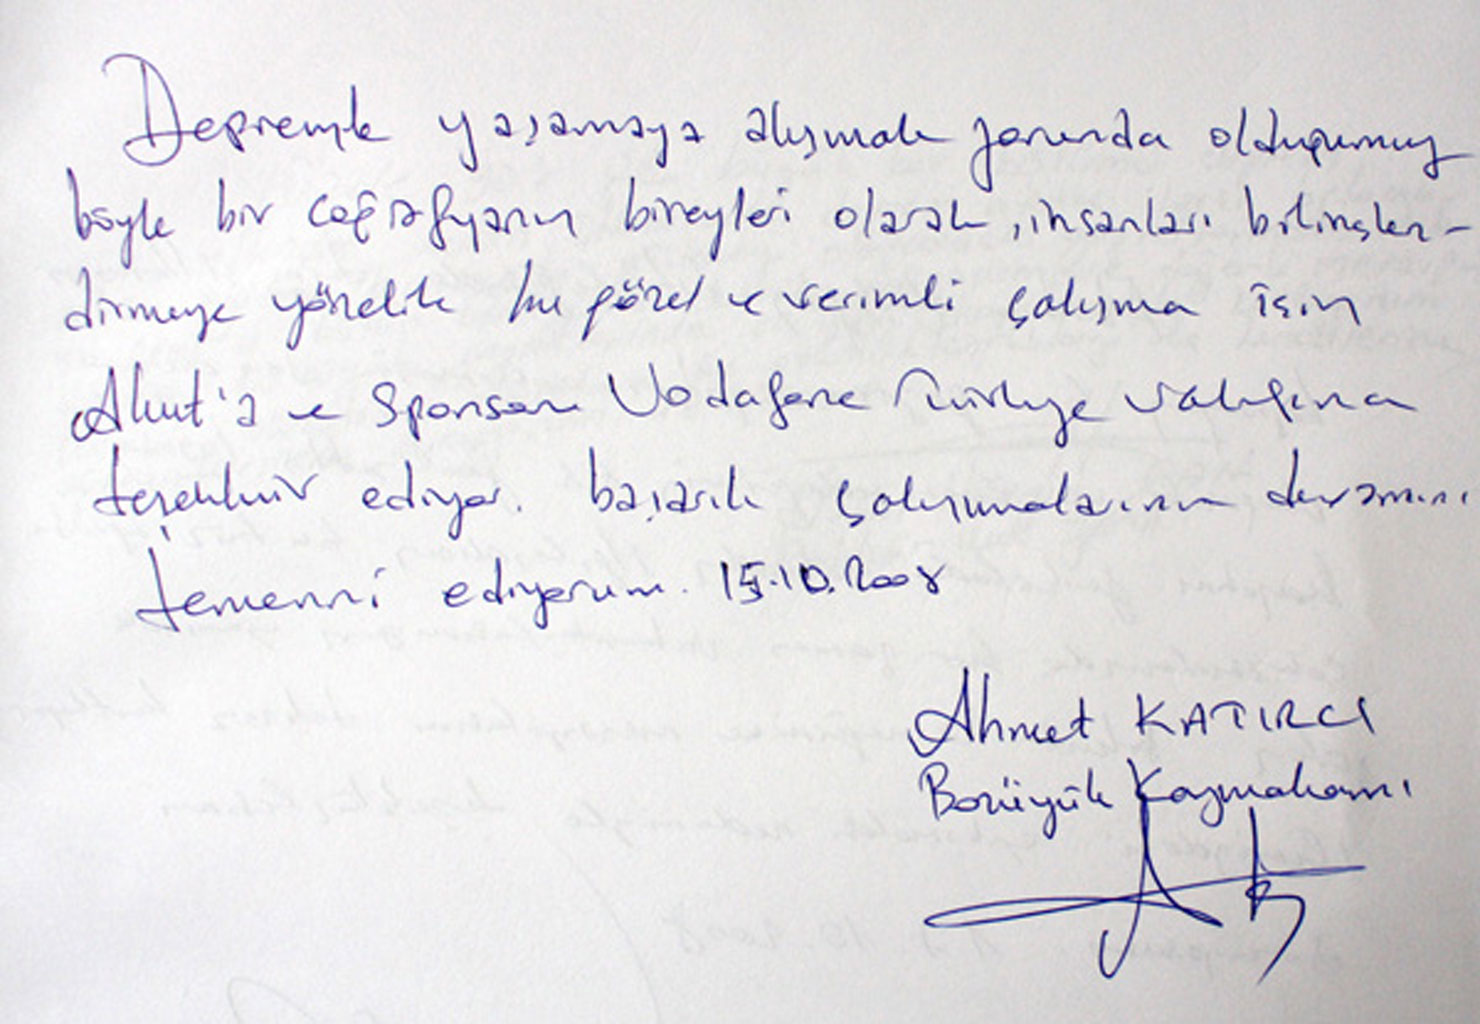 Depremle yaşamaya alışmak zorunda olduğumuz
böyle bir coğrafyanın bireyleri olarak, insanları bilinçlen-
dirmeye yönelik bu güzel ve verimli çalışma için
Akut'a ve sponsoru Vodafone Türkiye Vakfına
teşekkür ediyor. başarılı çalışmalarının devamını
temenni ediyorum. 15.10.2008
Ahmet KATIRCI
Bozüyük Kaymakamı